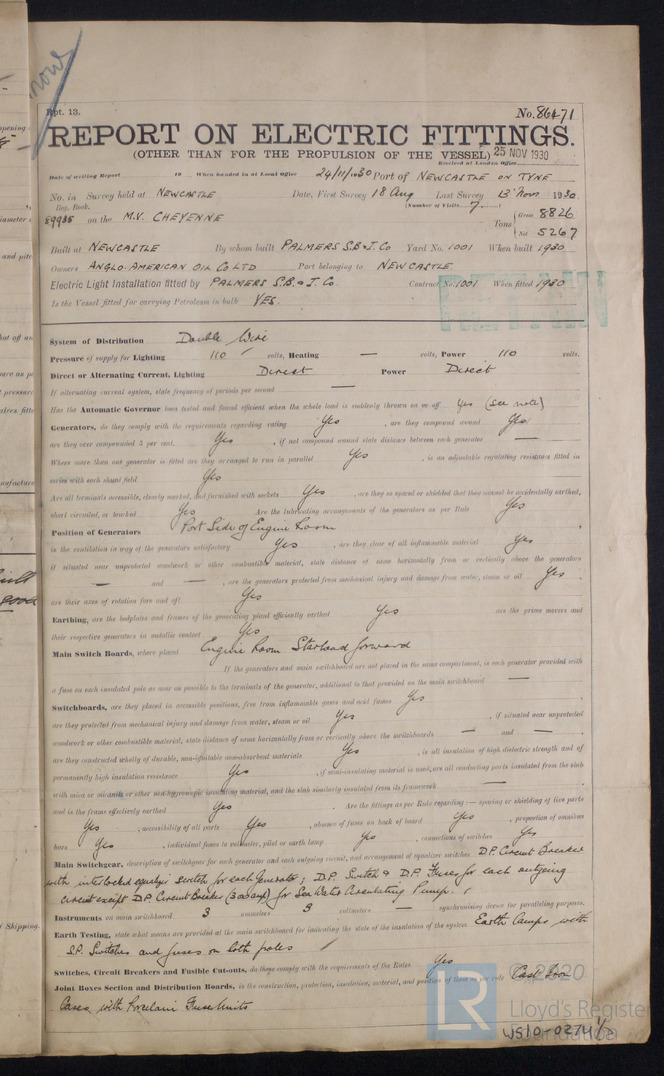 Rpt. 13.
No. 86471
REPORT ON ELECTRIC FITTINGS.
(OTHER THAN FOR THE PROPULSION OF THE VESSEL)
25 NOV 1930
Received at London Office
Date of writing Report 19 When handed in at Local Office 24/11/1930 Port of NEWCASTLE ON TYNE
No. in Survey held at NEWCASTLE Date, First Survey 18 Aug Last Survey 13 Nov 1930
Reg. Book. (Number of Visits 7)
89935 on the M.V. CHEYENNE Tons { Gross 8826
Net 5267
Built at NEWCASTLE By whom built PALMERS S.B. & I. Co Yard No. 1001 When built 1930
Owners ANGLO-AMERICAN OIL CO LTD Port belonging to NEWCASTLE
Electric Light Installation fitted by PALMERS S.B. & I. Co. Contract No. 1001 When fitted 1930
Is the Vessel fitted for carrying Petroleum in bulk YES.
System of Distribution Double Wire
Pressure of supply for Lighting 110 volts, Heating — volts, Power 110 volts.
Direct or Alternating Current, Lighting Direct Power Direct
If alternating current system, state frequency of periods per second —
Has the Automatic Governor been tested and found efficient when the whole load is suddenly thrown on or off Yes (see note)
Generators, do they comply with the requirements regarding rating Yes, are they compound wound Yes
are they over compounded 5 per cent. Yes, if not compound wound state distance between each generator —
Where more than one generator is fitted are they arranged to run in parallel Yes, is an adjustable regulating resistance fitted in
series with each shunt field Yes
Are all terminals accessible, clearly marked, and furnished with sockets Yes, are they so spaced or shielded that they cannot be accidentally earthed,
short circuited, or touched Yes Are the lubricating arrangements of the generators as per Rule Yes
Position of Generators Port Side of Engine Room
is the ventilation in way of the generators satisfactory Yes, are they clear of all inflammable material Yes
if situated near unprotected woodwork or other combustible material, state distance of same horizontally from or vertically above the generators
— and —, are the generators protected from mechanical injury and damage from water, steam or oil Yes.
are their axes of rotation fore and aft Yes
Earthing, are the bedplates and frames of the generating plant efficiently earthed Yes are the prime movers and
their respective generators in metallic contact Yes
Main Switch Boards, where placed Engine Room Starboard forward
If the generators and main switchboard are not placed in the same compartment, is each generator provided with
a fuse on each insulated pole as near as possible to the terminals of the generator, additional to that provided on the main switchboard —
Switchboards, are they placed in accessible positions, free from inflammable gases and acid fumes Yes
are they protected from mechanical injury and damage from water, steam or oil Yes, if situated near unprotected
woodwork or other combustible material, state distance of same horizontally from or vertically above the switchboards — and —
are they constructed wholly of durable, non-ignitable non-absorbent materials Yes, is all insulation of high dielectric strength and of
permanently high insulation resistance Yes, if semi-insulating material is used, are all conducting parts insulated from the slab
with mica or micanite or other non-hygroscopic insulating material, and the slab similarly insulated from its framework —
and is the frame effectively earthed Yes. Are the fittings as per Rule regarding:— spacing or shielding of live parts
Yes, accessibility of all parts Yes, absence of fuses on back of board Yes, proportion of omnibus
bars Yes, individual fuses to voltmeter, pilot or earth lamp Yes, connections of switches Yes
Main Switchgear, description of switchgear for each generator and each outgoing circuit, and arrangement of equaliser switches D.P. Circuit Breaker
with interlocked equaliser switch for each Generator; D.P. Switch & D.P. Fuses for each outgoing
circuit except D.P. Circuit Breaker (300 amps) for Sea Water Circulating Pump.
Instruments on main switchboard 3 ammeters 3 voltmeters — synchronising device for paralleling purposes.
Earth Testing, state what means are provided at the main switchboard for indicating the state of the insulation of the system Earth Lamps with
S.P. Switches and fuses on both poles
Switches, Circuit Breakers and Fusible Cut-outs, do these comply with the requirements of the Rules Yes
Joint Boxes Section and Distribution Boards, is the construction, protection, insulation, material, and position of these as per rule Cast Iron
Cases with Porcelain Fuse Units
© 2020
LR
Lloyd's Register
Foundation
WS10-0274 1/2